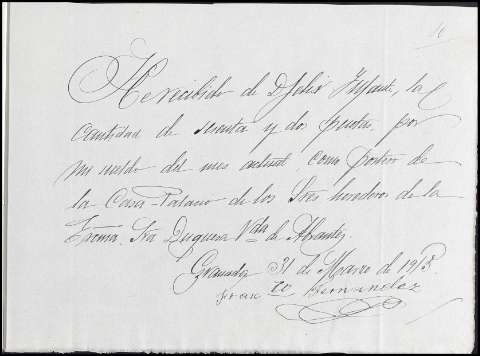 He recibido de D Felix Infante, la
cantidad de sesenta y dos pesetas, por
mi sueldo del mes actual, como portero de
la Casa-Palacio de los Sres herederos de la
Excma. Sra Duquesa Vda de Abrantes.
Granada 31 de Marzo de 1913.
Franco Hernandez